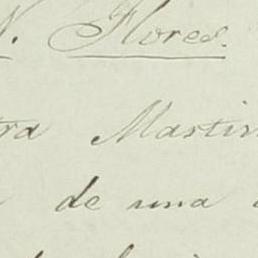 N. Flores.
tra Martin
de una